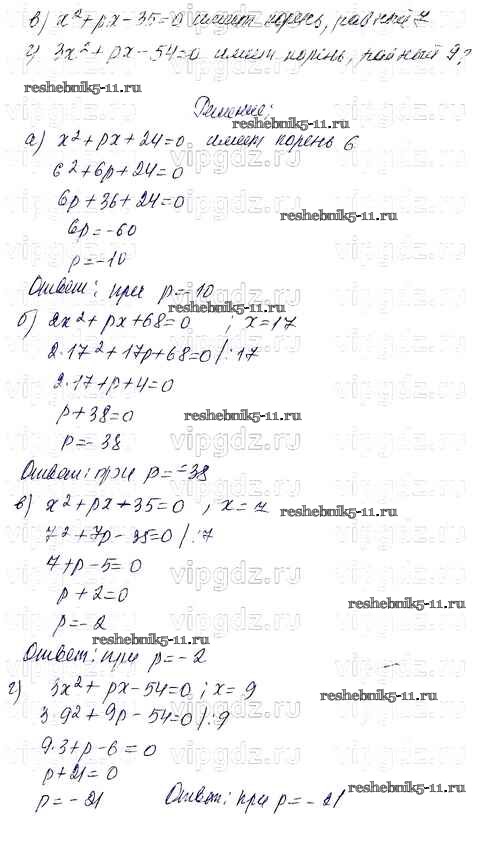 в) x²+px-35=0 имеет корень, равный 7
г) 3x²+px-54=0 имеет корень, равный 9?
reshebnik5-11.ru
Решение:
reshebnik5-11.ru
а) x²+px+24=0 имеет корень 6
6²+6p+24=0
6p+36+24=0
6p=-60
reshebnik5-11.ru
p=-10
Ответ: при p=-10
reshebnik5-11.ru
б) 2x²+px+68=0 ; x=17
2·17²+17p+68=0 /:17
vipgdz.ru
2·17+p+4=0
p+38=0
reshebnik5-11.ru
p=-38
vipgdz.ru
Ответ: при p=-38
в) x²+px+35=0 , x=7
reshebnik5-11.ru
7²+7p-35=0 /:7
7+p-5=0
vipgdz.ru
p+2=0
reshebnik5-11.ru
p=-2
reshebnik5-11.ru
Ответ: при p=-2
г) 3x²+px-54=0 ; x=9
3·9²+9p-54=0 /:9
vipgdz.ru
9·3+p-6=0
p+21=0
reshebnik5-11.ru
p=-21 Ответ: при p=-21
vipgdz.ru